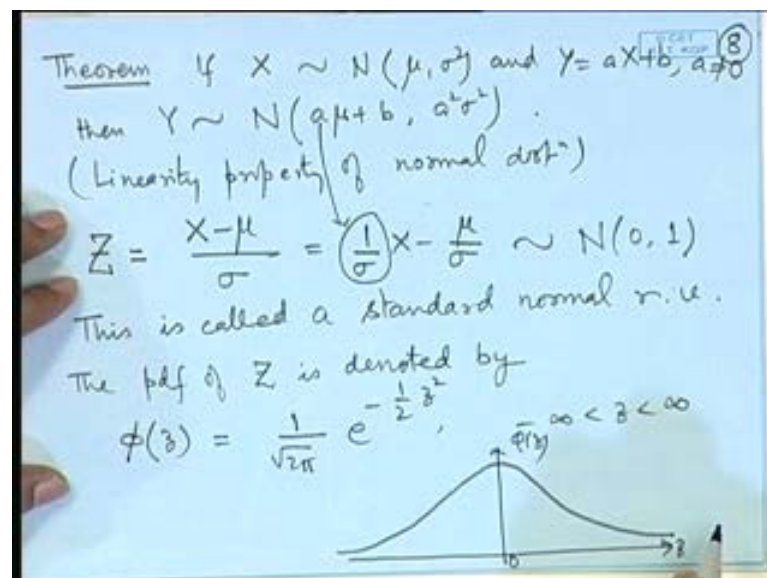 8
Theorem If X ~ N(μ, σ²) and Y = aX+b, a≠0
then Y ~ N(aμ+b, a²σ²).
(Linearity property of normal distⁿ)
Z = X-μ/σ = 1/σ X - μ/σ ~ N(0, 1)
This is called a standard normal r.v.
The pdf of Z is denoted by
φ(z) = 1/√2π e^{-1/2 z²}, -∞ < z < ∞
φ(z)
0
z